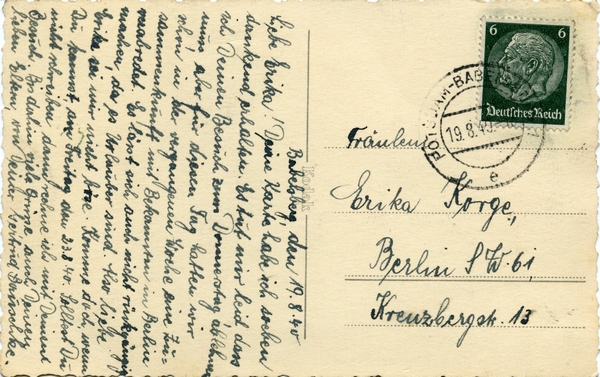 Babelsberg, den 19.8.40
Liebe Erika! Deine Karte habe ich soeben
dankend erhalten. Es tut mir leid dass
ich Deinen Besuch zum Donnerstag
muss aber für diesen Tag hatten wir
schon in der vergangenen Woche eine Zu-
sammenkunft mit Bekannten in Berlin
verabredet. Es lässt sich auch nicht rückgängig
machen, da es Urlauber sind. Also liebe
Erika sei mir nicht böse. Komme doch, wenn
Du kannst, am Freitag den 23.8.40. Solltest Du
nicht schreiben dann rechne ich mit Deinem
Besuch. Bis dahin viele Grüsse auch Deinen
lieben Eltern, von Deiner
6 6
Deutsches Reich
POTSDAM-BABELSBERG
19.8.40
e
Fräulein
Erika Korge,
Berlin S.W. 61,
Kreuzbergstr. 13